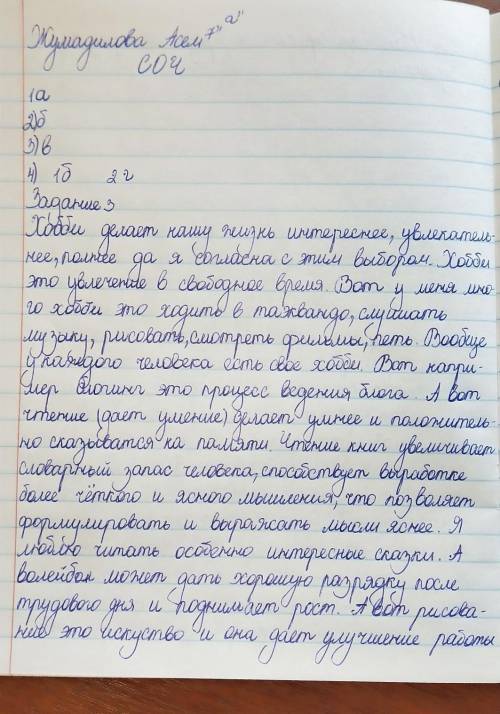 Жумадилова Асем 7"а"
СОЧ
1а
2)б
3)в
4) 1б 2г
Задание 3
Хобби делает нашу жизнь интереснее, увлекатель-
нее, полнее да я согласна с этим выбором. Хобби
это увлечение в свободное время. Вот у меня мно-
го хобби это ходить в таквандо, слушать
музыку, рисовать, смотреть фильмы, петь. Вообще
у каждого человека есть свое хобби. Вот напри-
мер блогинг это процесс ведения блога. А вот
чтение (дает умение) делает умнее и положитель-
но сказыватся на памяти. Чтение книг увеличивает
словарный запас человека, способствует выработке
более чёткого и ясного мышления, что позволяет
формулировать и выражать мысли яснее. Я
люблю читать особенно интересные сказки. А
волейбол может дать хорошую разрядку после
трудового дня и поднимает рост. А вот рисова-
ние это искуство и она дает улучшение работы